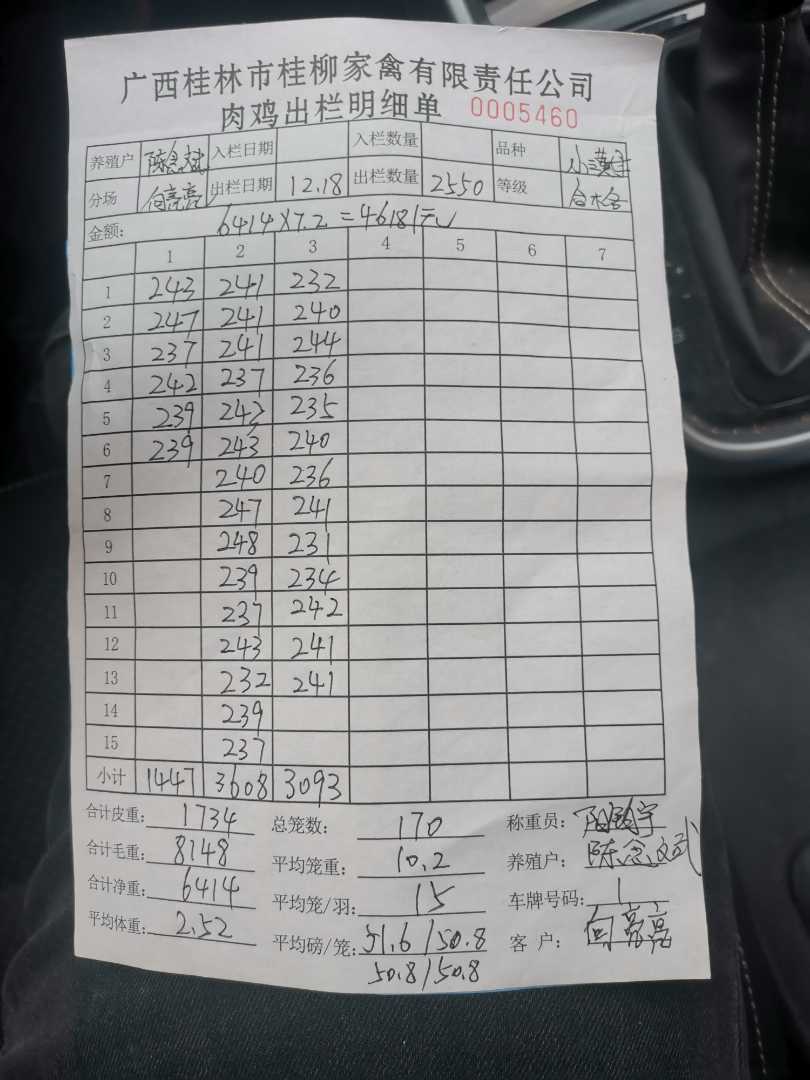 广西桂林市桂柳家禽有限责任公司
肉鸡出栏明细单 0005460
养殖户 陈念斌 入栏日期 入栏数量 品种
分场 向亮亮 出栏日期 12.18 出栏数量 2550 等级
金额: 6414×7.2=46181元
1 2 3 4 5 6 7
1 243 241 232
2 247 241 240
3 237 241 244
4 242 237 236
5 239 243 235
6 239 243 240
7 240 236
8 247 241
9 248 231
10 239 234
11 237 242
12 243 241
13 232 241
14 239
15 237
小计 1447 3608 3093
合计皮重: 1734 总笼数: 170 称重员:
合计毛重: 8148 平均笼重: 10.2 养殖户: 陈念斌
合计净重: 6414 平均笼/羽: 15 车牌号码: 1
平均体重: 2.52 平均磅/笼: 51.6/50.8 客户: 向亮亮
50.8/50.8